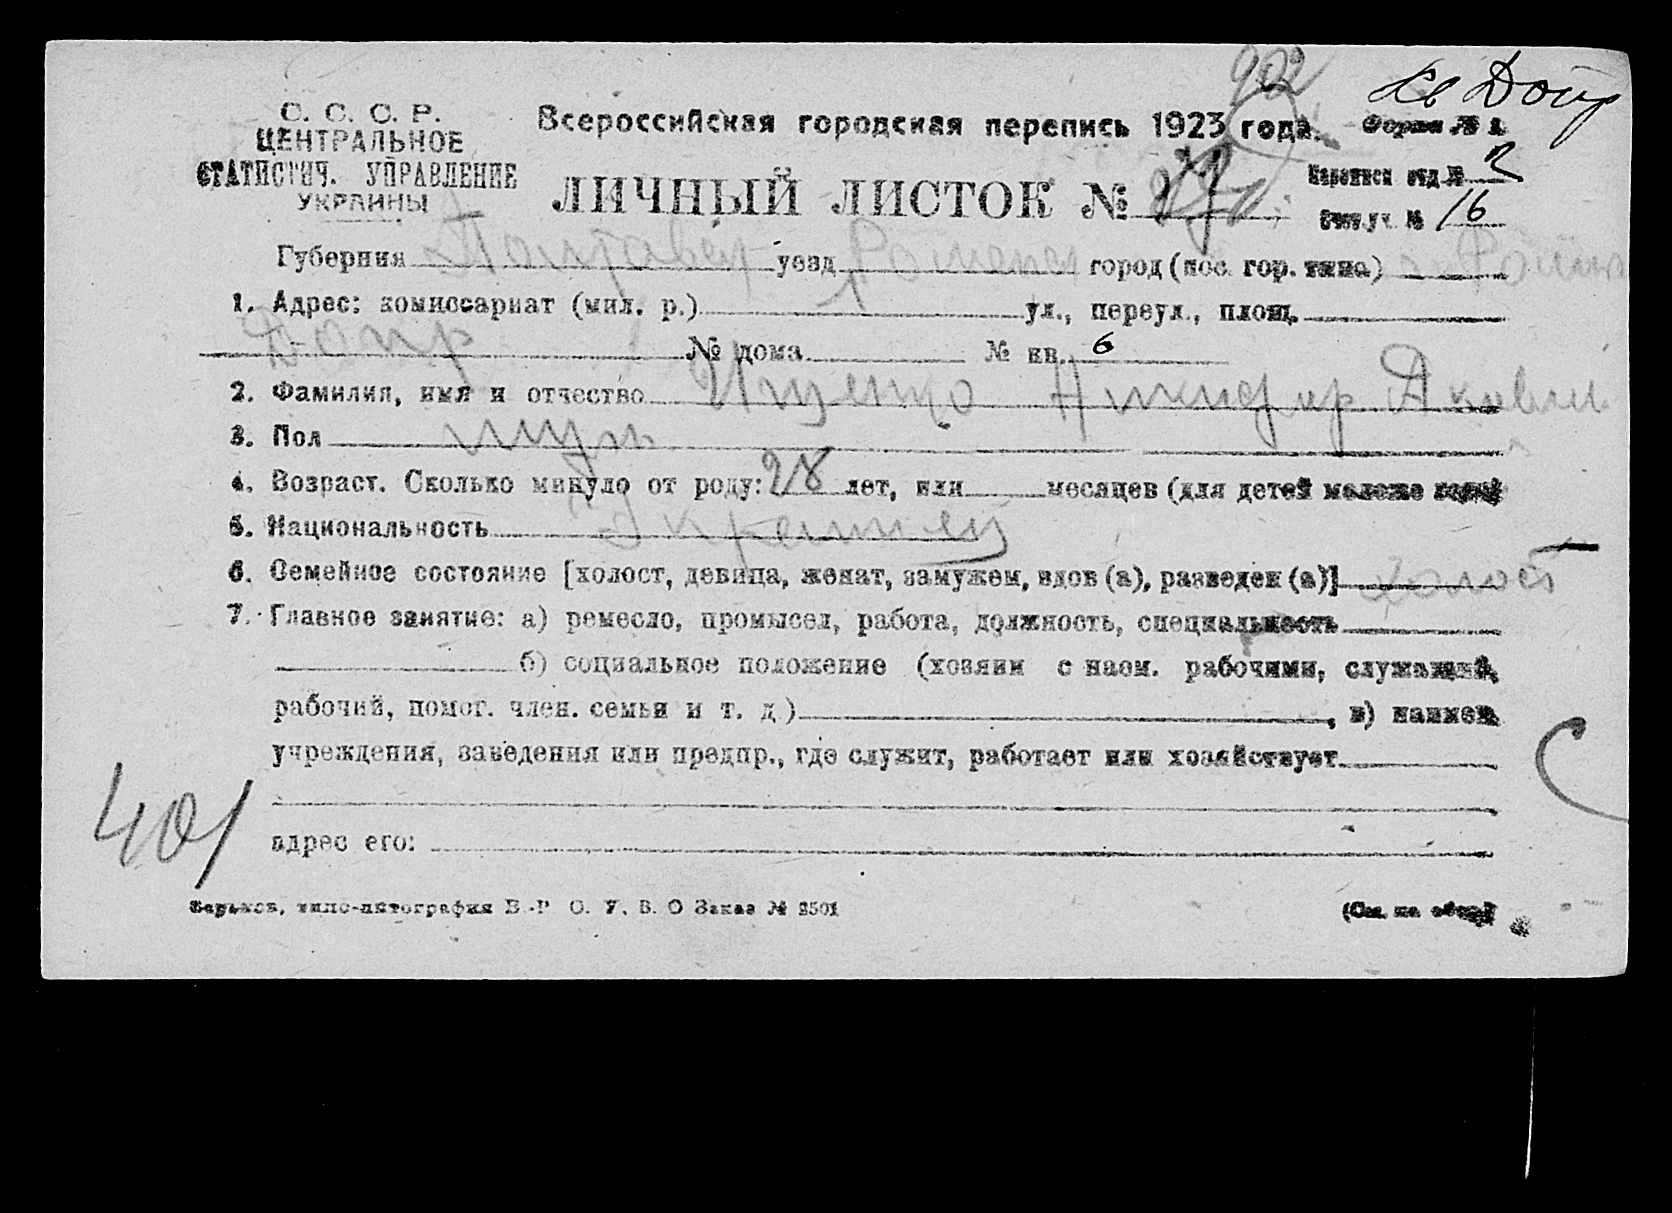 902
Св Допр
С. С. С. Р.
ЦЕНТРАЛЬНОЕ
СТАТИСТИЧ. УПРАВЛЕНИЕ
УКРАИНЫ
Всероссийская городская перепись 1923 года.
Форма № 1.
ЛИЧНЫЙ ЛИСТОК №
Переписн отд. № 2
Счет. уч. № 16
Губерния Полтавск уезд Роменск город (пос. гор. типа) Ромны
1. Адрес: комиссариат (мил. р.) 1 ул., переул., площ.
Допр № дома № кв. 6
2. Фамилия, имя и отчество Ищенко Никифор Яковл.
3. Пол муж
4. Возраст. Сколько минуло от роду: 28 лет, или месяцев (для детей моложе года)
5. Национальность Украинец
6. Семейное состояние [холост, девица, женат, замужем, вдов (а), разведен (а)] холост
7. Главное занятие: а) ремесло, промысел, работа, должность, специальность
б) социальное положение (хозяин с наем. рабочими, служащий,
рабочий, помог. член. семьи и т. д.) , в) наимен.
учреждения, заведения или предпр., где служит, работает или хозяйствует
адрес его:
401
Харьков, типо-литография В.-Р О. У. В. О Заказ № 2501
(См. на обор.)